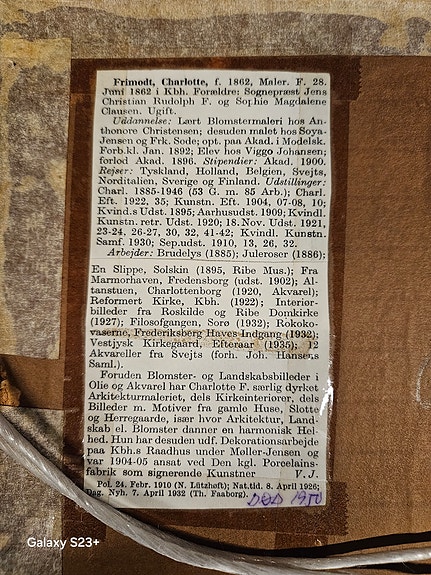 Frimodt, Charlotte, f. 1862, Maler. F. 28.
Juni 1862 i Kbh. Forældre: Sognepræst Jens
Christian Rudolph F. og Sophie Magdalene
Clausen. Ugift.
Uddannelse: Lært Blomstermaleri hos An-
thonore Christensen; desuden malet hos Soya-
Jensen og Frk. Sode; opt. paa Akad. i Modelsk.
Forb.kl. Jan. 1892; Elev hos Viggo Johansen;
forlod Akad. 1896. Stipendier: Akad. 1900.
Rejser: Tyskland, Holland, Belgien, Svejts,
Norditalien, Sverige og Finland. Udstillinger:
Charl. 1885-1946 (53 G. m. 85 Arb.); Charl.
Eft. 1922, 35; Kunstn. Eft. 1904, 07-08, 10;
Kvind.s Udst. 1895; Aarhusudst. 1909; Kvindl.
Kunstn. retr. Udst. 1920; 18. Nov. Udst. 1921,
23-24, 26-27, 30, 32, 41-42; Kvindl. Kunstn.
Samf. 1930; Sep.udst. 1910, 13, 26, 32.
Arbejder: Brudelys (1885); Juleroser (1886);
En Slippe, Solskin (1895, Ribe Mus.); Fra
Marmorhaven, Fredensborg (udst. 1902); Al-
tanstuen, Charlottenborg (1920, Akvarel);
Reformert Kirke, Kbh. (1922); Interiør-
billeder fra Roskilde og Ribe Domkirke
(1927); Filosofgangen, Sorø (1932); Rokoko-
vaserne, Frederiksberg Haves Indgang (1932);
Vestjysk Kirkegaard, Efteraar (1935); 12
Akvareller fra Svejts (forh. Joh. Hansens
Saml.).
Foruden Blomster- og Landskabsbilleder i
Olie og Akvarel har Charlotte F. særlig dyrket
Arkitekturmaleriet, dels Kirkeinteriører, dels
Billeder m. Motiver fra gamle Huse, Slotte
og Herregaarde, især hvor Arkitektur, Land-
skab el. Blomster danner en harmonisk Hel-
hed. Hun har desuden udf. Dekorationsarbejde
paa Kbh.s Raadhus under Møller-Jensen og
var 1904-05 ansat ved Den kgl. Porcelains-
fabrik som signerende Kunstner V. J.
Pol. 24. Febr. 1910 (N. Lützhøft); Nat.tid. 8. April 1926;
Dag. Nyh. 7. April 1932 (Th. Faaborg).
DØD 1950
Galaxy S23+